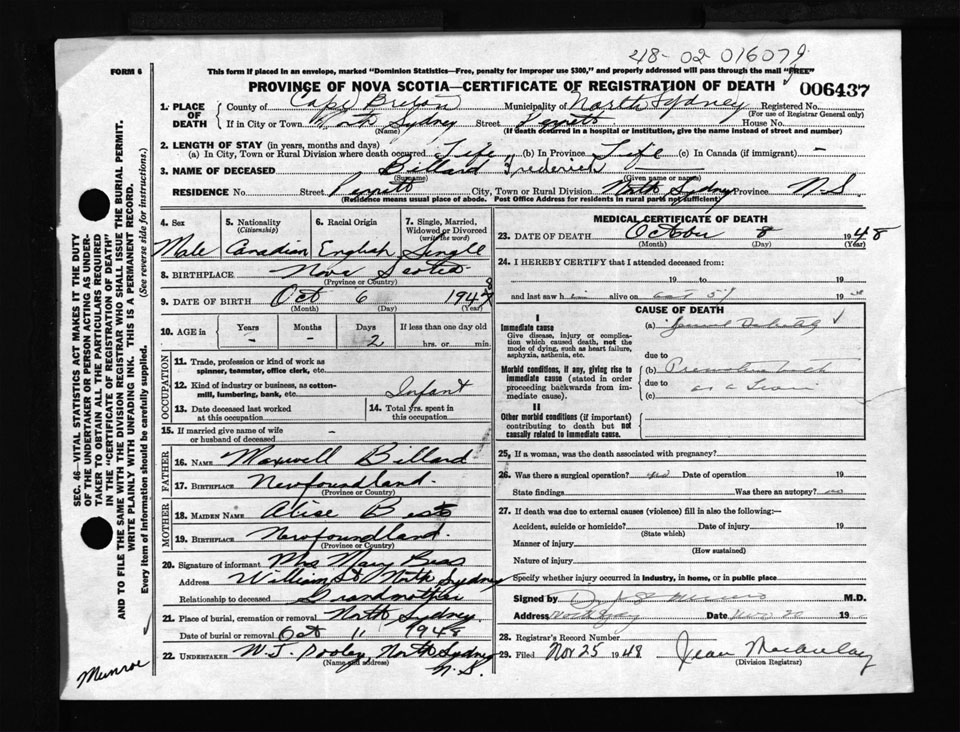 48-02 016079
FORM 6
This form if placed in an envelope, marked "Dominion Statistics—Free, penalty for improper use $300," and properly addressed will pass through the mail "FREE"
PROVINCE OF NOVA SCOTIA—CERTIFICATE OF REGISTRATION OF DEATH 006437
1. PLACE OF DEATH
County of Cape Breton Municipality of North Sydney Registered No.
(For use of Registrar General only)
If in City or Town North Sydney Street House No.
(Name) (If death occurred in a hospital or institution, give the name instead of street and number)
2. LENGTH OF STAY (in years, months and days)
(a) In City, Town or Rural Division where death occurred Life (b) In Province Life (c) In Canada (if immigrant) -
3. NAME OF DECEASED Billard Frederick
(Surname) (Given name or names)
RESIDENCE No. Street City, Town or Rural Division North Sydney Province N.S.
(Residence means usual place of abode. Post Office Address for residents in rural parts not sufficient)
4. Sex Male
5. Nationality (Citizenship) Canadian
6. Racial Origin English
7. Single, Married, Widowed or Divorced (write the word) Single
8. BIRTHPLACE Nova Scotia
(Province or Country)
9. DATE OF BIRTH Oct 6 1948
(Month) (Day) (Year)
10. AGE in Years - Months - Days 2 If less than one day old hrs. or min.
OCCUPATION
11. Trade, profession or kind of work as spinner, teamster, office clerk, etc.
12. Kind of industry or business, as cotton-mill, lumbering, bank, etc. Infant
13. Date deceased last worked at this occupation
14. Total yrs. spent in this occupation
15. If married give name of wife or husband of deceased -
FATHER
16. NAME Maxwell Billard
17. BIRTHPLACE Newfoundland.
(Province or Country)
MOTHER
18. MAIDEN NAME Alice
19. BIRTHPLACE Newfoundland.
(Province or Country)
20. Signature of informant Mrs Mary
Address William St. North Sydney
Relationship to deceased Grandmother
21. Place of burial, cremation or removal North Sydney
Date of burial or removal Oct 11 1948
22. UNDERTAKER W.J. Dooley North Sydney
(Name and address) N.S.
MEDICAL CERTIFICATE OF DEATH
23. DATE OF DEATH October 8 1948
(Month) (Day) (Year)
24. I HEREBY CERTIFY that I attended deceased from:
19 to 19
and last saw him alive on Oct 19
CAUSE OF DEATH
I
Immediate cause
Give disease, injury or complication which caused death, not the mode of dying, such as heart failure, asphyxia, asthenia, etc.
(a) General Debility
due to
Morbid conditions, if any, giving rise to immediate cause (stated in order proceeding backwards from immediate cause).
(b) Premature birth
due to as a Twin
(c)
II
Other morbid conditions (if important) contributing to death but not causally related to immediate cause.
25. If a woman, was the death associated with pregnancy?
26. Was there a surgical operation? no Date of operation 19
State findings Was there an autopsy? no
27. If death was due to external causes (violence) fill in also the following:—
Accident, suicide or homicide? Date of injury 19
(State which)
Manner of injury
(How sustained)
Nature of injury
Specify whether injury occurred in industry, in home, or in public place
Signed by M.D.
Address Date 20 19
28. Registrar's Record Number
29. Filed Nov 25 1948 Jean Macaulay
(Division Registrar)
SEC. 46—VITAL STATISTICS ACT MAKES IT THE DUTY
OF THE UNDERTAKER OR PERSON ACTING AS UNDER-
TAKER TO OBTAIN ALL THE PARTICULARS REQUIRED
IN THE "CERTIFICATE OF REGISTRATION OF DEATH"
AND TO FILE THE SAME WITH THE DIVISION REGISTRAR WHO SHALL ISSUE THE BURIAL PERMIT.
WRITE PLAINLY WITH UNFADING INK. THIS IS A PERMANENT RECORD.
Every item of information should be carefully supplied. (See reverse side for instructions.)
Munroe